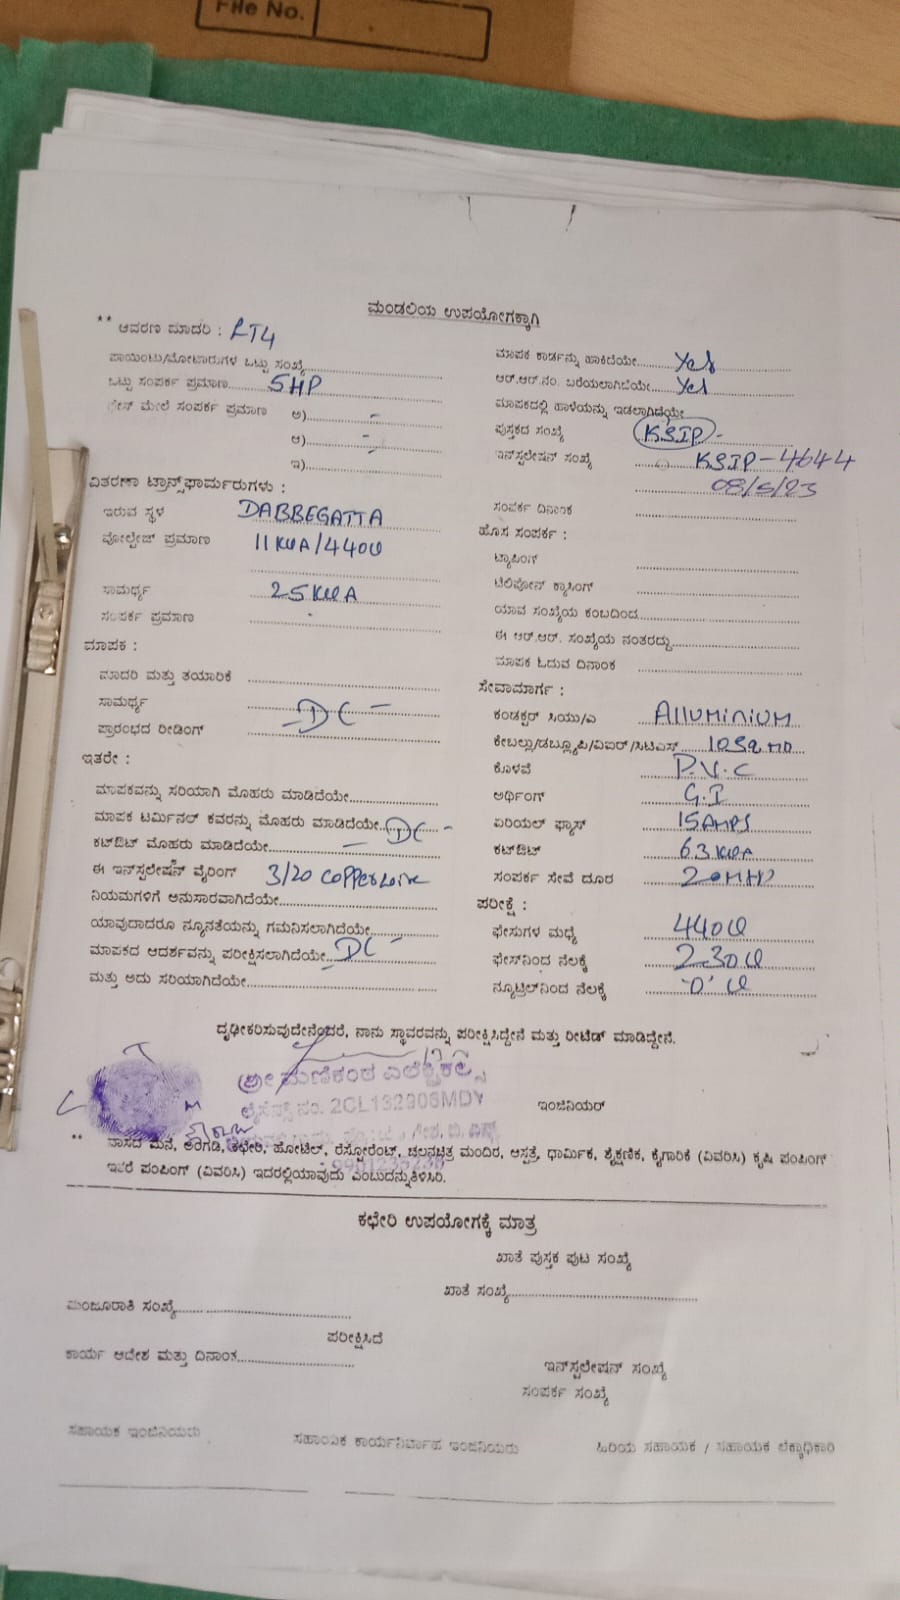 File No.
ಮಂಡಲಿಯ ಉಪಯೋಗಕ್ಕಾಗಿ
** ಆವರಣ ಮಾದರಿ : LT4
ಪಾಯಿಂಟು/ಮೋಟಾರುಗಳ ಒಟ್ಟು ಸಂಖ್ಯೆ
ಒಟ್ಟು ಸಂಪರ್ಕ ಪ್ರಮಾಣ 5HP
ಮೇಲೆ ಸಂಪರ್ಕ ಪ್ರಮಾಣ ಅ) -
ಆ) -
ಇ)
ವಿತರಣಾ ಟ್ರಾನ್ಸ್‌ಫಾರ್ಮರುಗಳು :
ಇರುವ ಸ್ಥಳ DABBEGATTA
ವೋಲ್ಟೇಜ್ ಪ್ರಮಾಣ 11KVA/440V
ಸಾಮರ್ಥ್ಯ 25KVA
ಸಂಪರ್ಕ ಪ್ರಮಾಣ
ಮಾಪಕ :
ಮಾದರಿ ಮತ್ತು ತಯಾರಿಕೆ
ಸಾಮರ್ಥ್ಯ - DC -
ಪ್ರಾರಂಭದ ರೀಡಿಂಗ್
ಇತರೇ :
ಮಾಪಕವನ್ನು ಸರಿಯಾಗಿ ಮೊಹರು ಮಾಡಿದೆಯೇ
ಮಾಪಕ ಟರ್ಮಿನಲ್ ಕವರನ್ನು ಮೊಹರು ಮಾಡಿದೆಯೇ - DC -
ಕಟ್‌ಔಟ್ ಮೊಹರು ಮಾಡಿದೆಯೇ
ಈ ಇನ್‌ಸ್ಟಲೇಷನ್ ವೈರಿಂಗ್ 3/20 COPPER WIRE
ನಿಯಮಗಳಿಗೆ ಅನುಸಾರವಾಗಿದೆಯೇ
ಯಾವುದಾದರೂ ನ್ಯೂನತೆಯನ್ನು ಗಮನಿಸಲಾಗಿದೆಯೇ
ಮಾಪಕದ ಆದರ್ಶವನ್ನು ಪರೀಕ್ಷಿಸಲಾಗಿದೆಯೇ - DC -
ಮತ್ತು ಅದು ಸರಿಯಾಗಿದೆಯೇ
ಮಾಪಕ ಕಾರ್ಡನ್ನು ಹಾಕಿದೆಯೇ Yes
ಆರ್.ಆರ್.ನಂ. ಬರೆಯಲಾಗಿದೆಯೇ Yes
ಮಾಪಕದಲ್ಲಿ ಹಾಳೆಯನ್ನು ಇಡಲಾಗಿದೆಯೇ
ಪುಸ್ತಕದ ಸಂಖ್ಯೆ KSIP -
ಇನ್‌ಸ್ಟಲೇಷನ್ ಸಂಖ್ಯೆ KSIP-4644
08/5/23
ಸಂಪರ್ಕ ದಿನಾಂಕ
ಹೊಸ ಸಂಪರ್ಕ :
ಟ್ಯಾಪಿಂಗ್
ಟೆಲಿಫೋನ್ ಕ್ರಾಸಿಂಗ್
ಯಾವ ಸಂಖ್ಯೆಯ ಕಂಬದಿಂದ
ಈ ಆರ್.ಆರ್. ಸಂಖ್ಯೆಯ ನಂತರದ್ದು
ಮಾಪಕ ಓದುವ ದಿನಾಂಕ
ಸೇವಾಮಾರ್ಗ :
ಕಂಡಕ್ಟರ್ ಸಿಯು/ಎ AllUMINIUM
ಕೇಬಲ್ಲು/ಡಬ್ಲ್ಯೂಪಿ/ವಿಐಆರ್/ಸಿಟಿಎಸ್ 10SQ MD
ಕೊಳವೆ P.V.C
ಅರ್ಥಿಂಗ್ G.I
ಏರಿಯಲ್ ಫ್ಯೂಸ್ 15AMPS
ಕಟ್‌ಔಟ್ 63 KVA
ಸಂಪರ್ಕ ಸೇವೆ ದೂರ
ಪರೀಕ್ಷೆ :
ಫೇಸುಗಳ ಮಧ್ಯೆ 440V
ಫೇಸ್‌ನಿಂದ ನೆಲಕ್ಕೆ 230V
ನ್ಯೂಟ್ರಲ್‌ನಿಂದ ನೆಲಕ್ಕೆ 'O' V
ದೃಢೀಕರಿಸುವುದೇನೆಂದರೆ, ನಾನು ಸ್ಥಾವರವನ್ನು ಪರೀಕ್ಷಿಸಿದ್ದೇನೆ ಮತ್ತು ರೀಟೆಡ್ ಮಾಡಿದ್ದೇನೆ.
ಶ್ರೀ ಮಣಿಕಂಠ ಎಲೆಕ್ಟ್ರಿಕಲ್ಸ್
ಲೈಸೆನ್ಸ್ ನಂ. 2CL132906MDY
ಇಂಜಿನಿಯರ್
** ವಾಸದ ಮನೆ, ಅಂಗಡಿ, ಕಛೇರಿ, ಹೋಟೆಲ್, ರೆಸ್ಟೋರೆಂಟ್, ಚಲನಚಿತ್ರ ಮಂದಿರ, ಆಸ್ಪತ್ರೆ, ಧಾರ್ಮಿಕ, ಶೈಕ್ಷಣಿಕ, ಕೈಗಾರಿಕೆ (ವಿವರಿಸಿ) ಕೃಷಿ ಪಂಪಿಂಗ್
ಇತರೆ ಪಂಪಿಂಗ್ (ವಿವರಿಸಿ) ಇದರಲ್ಲಿಯಾವುದು ಎಂಬುದನ್ನು ತಿಳಿಸಿರಿ.
ಕಛೇರಿ ಉಪಯೋಗಕ್ಕೆ ಮಾತ್ರ
ಖಾತೆ ಪುಸ್ತಕ ಪುಟ ಸಂಖ್ಯೆ
ಖಾತೆ ಸಂಖ್ಯೆ
ಮಂಜೂರಾತಿ ಸಂಖ್ಯೆ
ಪರೀಕ್ಷಿಸಿದೆ
ಕಾರ್ಯ ಆದೇಶ ಮತ್ತು ದಿನಾಂಕ
ಇನ್‌ಸ್ಟಲೇಷನ್ ಸಂಖ್ಯೆ
ಸಂಪರ್ಕ ಸಂಖ್ಯೆ
ಸಹಾಯಕ ಇಂಜಿನಿಯರು
ಸಹಾಯಕ ಕಾರ್ಯನಿರ್ವಾಹ ಇಂಜಿನಿಯರು
ಹಿರಿಯ ಸಹಾಯಕ / ಸಹಾಯಕ ಲೆಕ್ಕಾಧಿಕಾರಿ